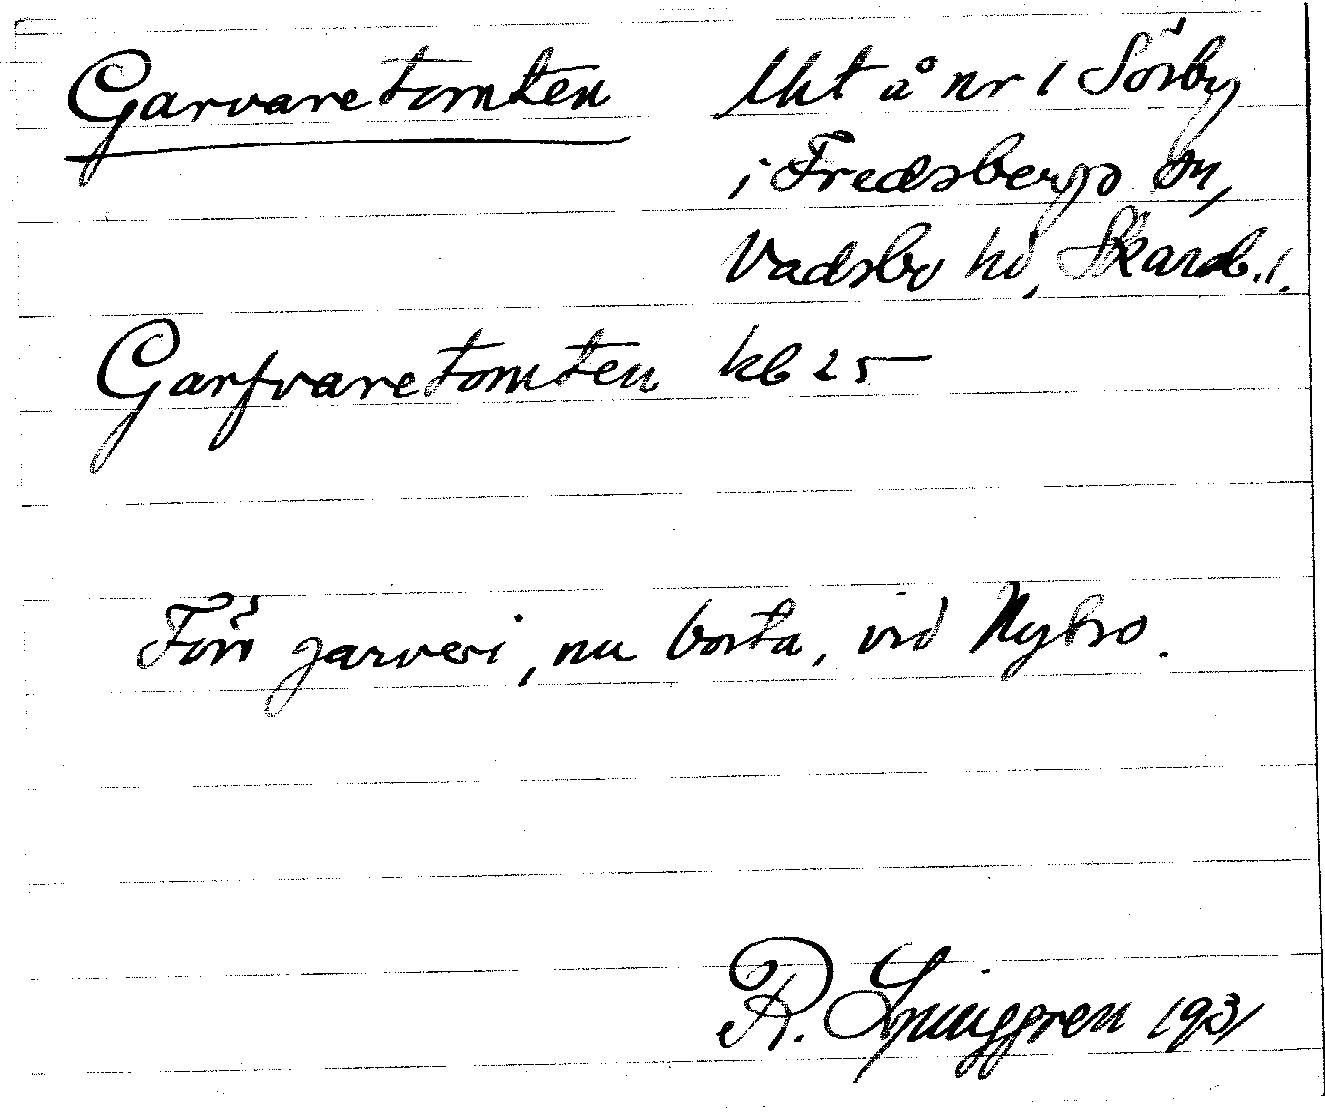 Garvaretomten Utt å nr 1 Sörby
i Fredsbergs sn,
Vadsbo hd, Skarab. l.
Garfvaretomten kb 25
Förr garveri, nu borta, vid Nybro.
R. Ljunggren 1931